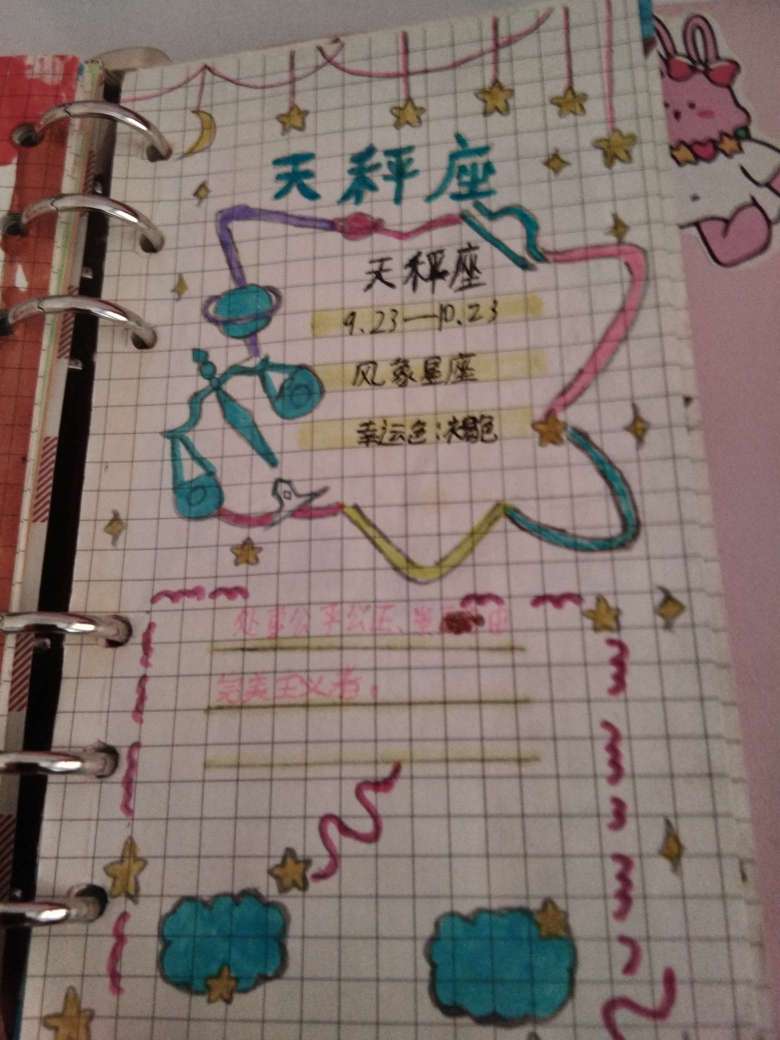 天秤座
天秤座
9.23—10.23
风象星座
幸运色:褐色
处重公平公正、
完美主义者。